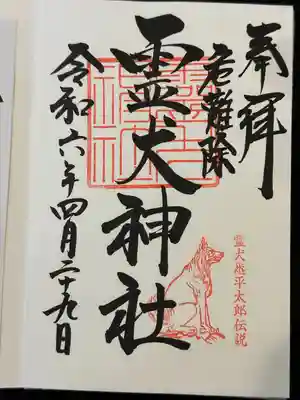 奉拝
厄難除
霊犬神社
令和六年四月二十九日
霊犬悉平太郎伝説